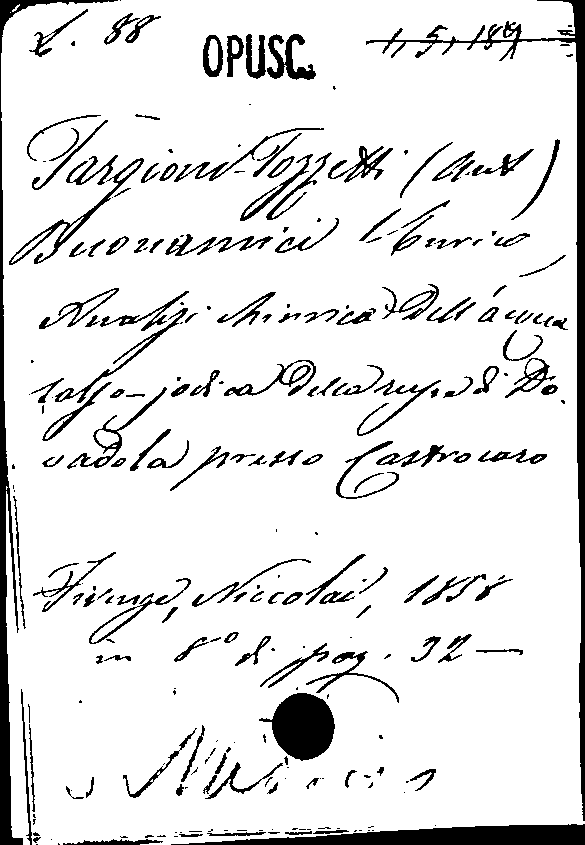 L. 88
OPUSC.
1, 5, 189
Targioni-Tozzetti (Ant)
Buonamici Enrico
Analisi chimica dell'acqua
salso-jodica della rupe di Do-
vadola presso Castrocaro
Firenze, Niccolai, 1858
in 8° di pag. 32 —